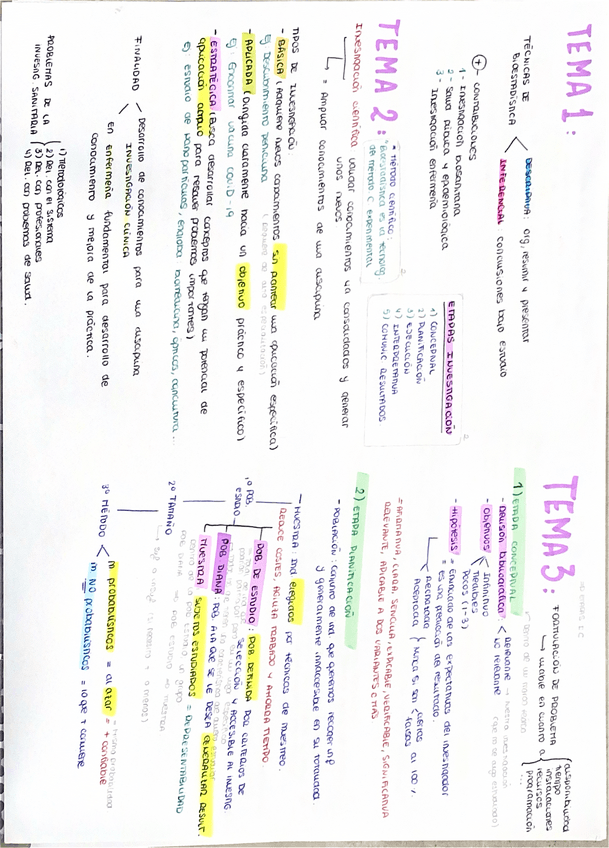 TEMA 1:
TÉCNICAS DE BIOESTADÍSTICA
DESCRIPTIVA: org, resumir y presentar
INFERENCIAL conclusiones bajo estudio
(+) CONTRIBUCIONES
1- Investigación biosanitaria
2- Salud pública y epidemiológica
3- Investigación enfermería
TEMA 2:
* método científico
"Bioestadística es la tecnolog. de método c. experimental
ETAPAS INVESTIGACIÓN
1) CONCEPTUAL
2) PLANIFICACIÓN
3) EJECUCIÓN
4) INTERPRETATIVA
5) COMUNIC. RESULTADOS
Investigación científica validar conocimientos ya consolidados y generar
unos nuevos
= Ampliar conocimientos de una disciplina
TIPOS DE INVESTIGACIÓN:
- BÁSICA (Adquiere nuevos conocimientos sin plantear una aplicación específica)
Ej: Descubrimiento penicilina
- APLICADA (Dirigida claramente hacia un objetivo práctico y específico)
Ej: Encontrar vacuna COVID-19
- ESTRATÉGICA (Busca desarrollar conceptos que tengan un potencial de
aplicación amplio para resolver problemas importantes)
Ej: estudio de nanopartículas, energía, óptica, acuicultura...
FINALIDAD
Desarrollo de conocimientos para una disciplina
INVESTIGACIÓN CLÍNICA
En enfermería fundamental para desarrollo de
conocimiento y mejora de la práctica.
PROBLEMAS DE LA INVESTIG SANITARIA
1) Metodológicos
2) Rel. con el sistema
3) Rel. con profesionales
4) Rel. con problemas de salud.
TEMA 3:
1) ETAPA CONCEPTUAL
FORMULACIÓN DE PROBLEMA
viable en cuanto a
disponibilidad
tiempo
instalaciones
recursos
programación
...
- Revisión bibliográfica
Relevante
No relevante
- Objetivos
Infinitivo
Medibles
Pocos (1-3)
- Hipótesis = enunciado de las expectativas del investigador
= es una predicción del resultado
Rechazada
Aceptada
Nunca si son ciertos
falsos al 100%
= AFIRMATIVA, CLARA, SENCILLA, EXPLICABLE, VERIFICABLE, SIGNIFICATIVA
RELEVANTE, APLICABLE A DOS VARIANTES O MÁS
2) ETAPA PLANIFICACIÓN
- POBLACIÓN: conjunto de ind que queremos recoger inf
y generalmente inaccesible en su totalidad.
- MUESTRA: Ind elegidos por técnicas de muestreo.
REDUCE COSTES, AGILIZA TRABAJO Y AHORRA TIEMPO
1º POB. ESTUDIO
POB. DE ESTUDIO: POB DEFINIDA POR CRITERIOS DE
SELECCIÓN Y ACCESIBLE AL INVESTIG.
POB. DIANA: POB. A LA QUE SE LE DESEA GENERALIZAR RESULT.
MUESTRA: SUJETOS ESTUDIADOS = REPRESENTATIVIDAD
2º TAMAÑO
3º MÉTODO
m. probabilísticos = al azar = + confiable
m. NO probabilísticos = lo que + conviene